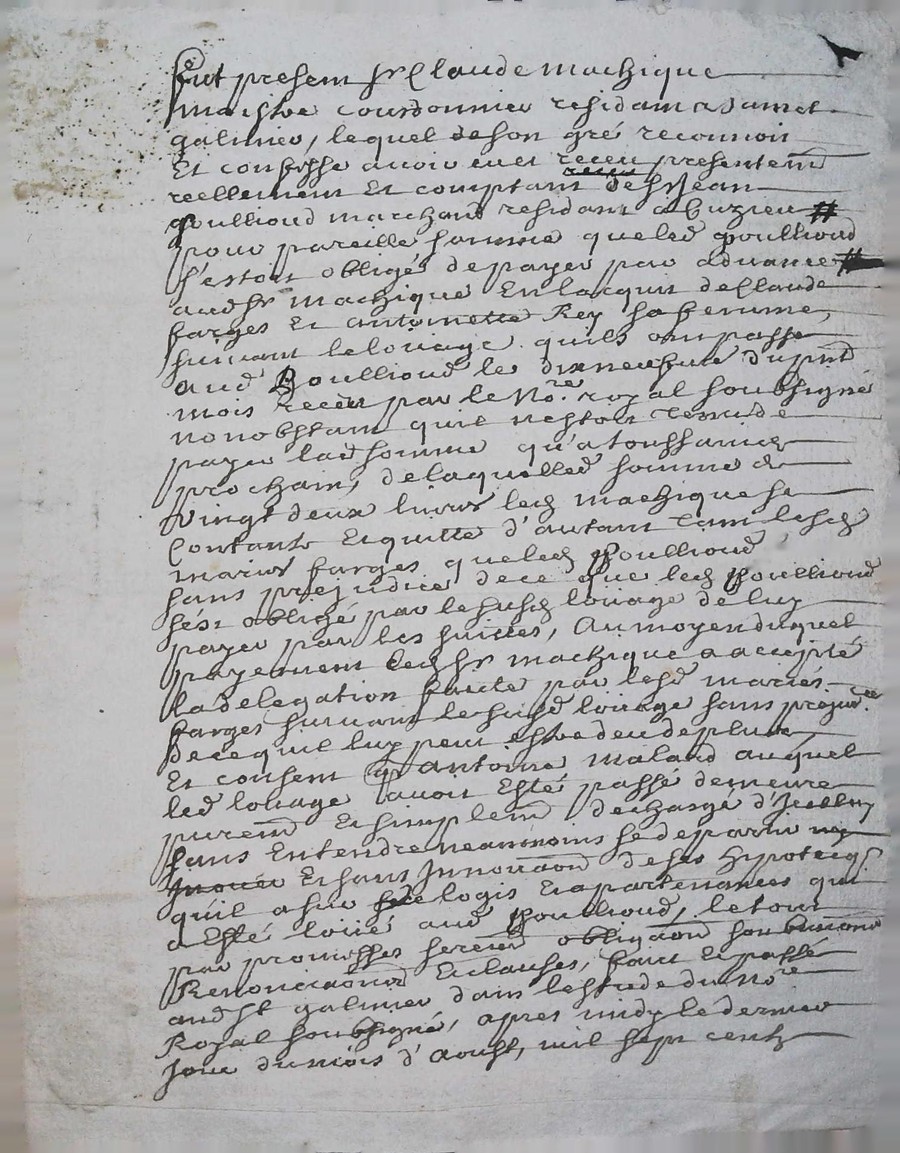 fut present sr Claude machique
maistre courdonnier residant a saint
galmier, lequel de son gré reconnoit
Et confesse avoir eu et receu presentemt
reellement Et comptant de sr Jean
poullioud marchand residant a Cuzieu #
pour pareille somme que led poullioud
s'estoit obligés de payer par advance #
aud sr machique En lacquit de Claude
farges Et antoinette Rey sa femme,
suivant le louage quils ont passé
aud Poullioud le dixneufvie du pnt
mois receu par le No.re royal soubsigné
nonobstant quil nestoit tenu de
payer lad somme qu'a toussaincts
prochain, de laquelled somme de
vingt deux livres led machique se
Contante Et quitte d'autant tant lesd
mariés farges que led Poullioud
sans prejudice de ce que led Poullioud
s'est obligé par le susd louage de luy
payer par les suittes, Au moyen duquel
payement led sr machique a accepté
la delegation faicte par lesd mariés
farges suivant le susd louage sans prejud.ce
de ce quil luy peut estre deu de plus,
Et consent q antoine malard auquel
led louage avoit Esté passé demeure
puremt Et simplemt dechargé d'Icelluy
sans Entendre neanmoins se departir ny
Innover Et sans Innovaon de ses hypoteqs
quil a sur le logis Et apartenances qui
a Esté loüé aud Poullioud, le tout
par promesses sermt obligaon soubmissions
Renonciaons Et clauses, fait Et passé
aud St galmier dans lestude du No.re
Royal soubsigné, apres midy le dernier
Jour du mois d'aoust, mil sept centz